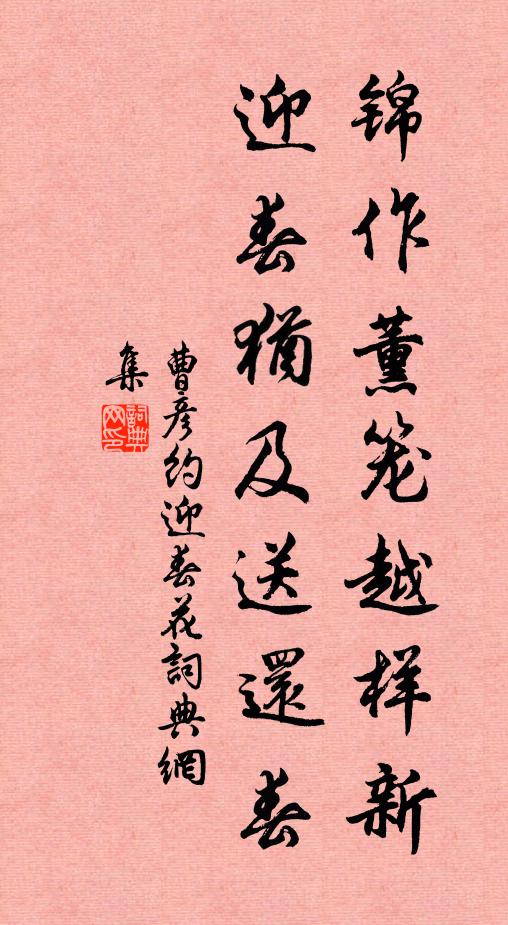 锦作薰笼越样新
迎春犹及送還春
曹彦约迎春花詞典網
集
詞典网印